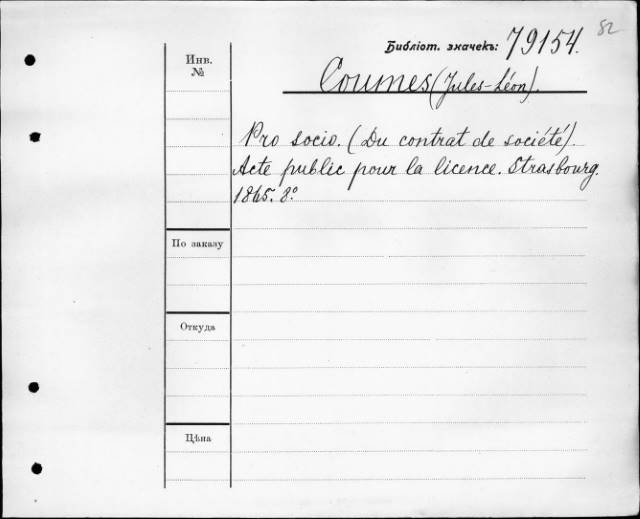 82
Библіот. значекъ: 79154.
Инв. №
Coumes (Jules-Léon).
Pro socio. (Du contrat de société).
Acte public pour la licence. Strasbourg.
1865. 8º
По заказу
Откуда
Цѣна